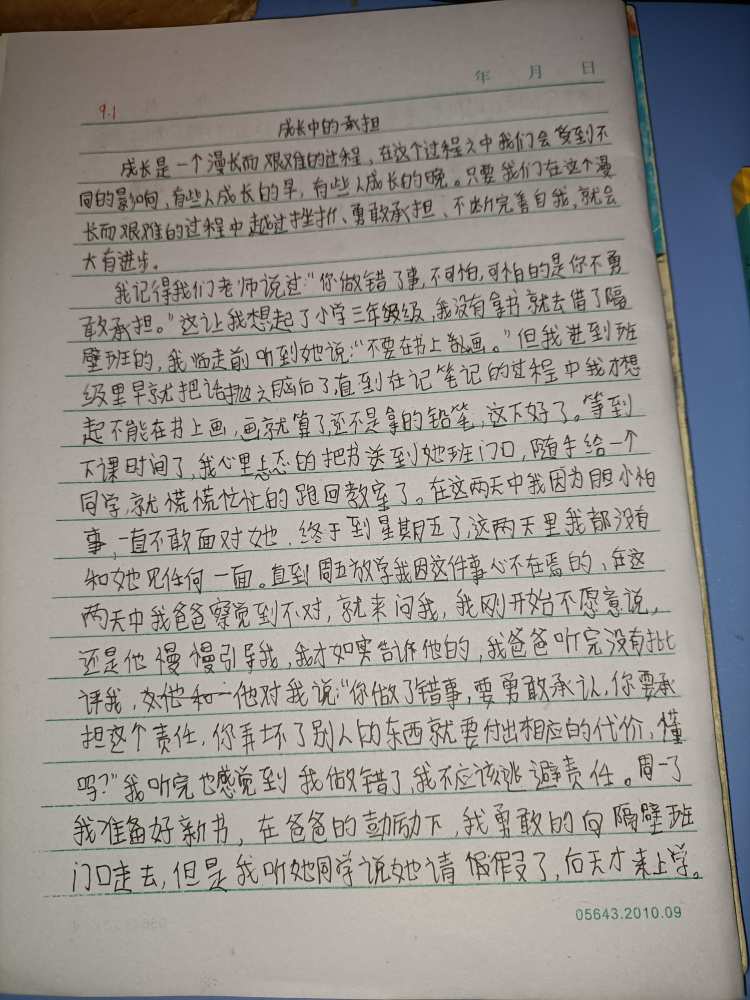 年 月 日
9.1
成长中的承担
成长是一个漫长而艰难的过程，在这个过程之中我们会受到不
同的影响，有些人成长的早，有些人成长的晚。只要我们在这个漫
长而艰难的过程中越过挫折、勇敢承担、不断完善自我，就会
大有进步。
我记得我们老师说过："你做错了事，不可怕，可怕的是你不勇
敢承担。"这让我想起了小学三年级级，我没有拿书就去借了隔
壁班的，我临走前听到她说："不要在书上乱画。"但我进到班
级里早就把话抛之脑后了，直到在记笔记的过程中我才想
起不能在书上画，画就算了，还不是拿的铅笔，这下好了。等到
下课时间了，我心里忐忑的把书送到她班门口，随手给一个
同学，就慌慌忙忙的跑回教室了。在这两天中我因为胆小怕
事，一直不敢面对她，终于到星期五了，这两天里我都没有
和她见任何一面。直到周五放学我因这件事心不在焉的，在这
两天中我爸爸察觉到不对，就来问我，我刚开始不愿意说，
还是他慢慢引导我，我才如实告诉他的，我爸爸听完没有批
评我，他对我说："你做了错事，要勇敢承认，你要承
担这个责任，你弄坏了别人的东西就要付出相应的代价，懂
吗？"我听完也感觉到我做错了，我不应该逃避责任。周一了
我准备好新书，在爸爸的鼓励下，我勇敢的向隔壁班
门口走去，但是我听她同学说她请假了，后天才来上学。
05643.2010.09